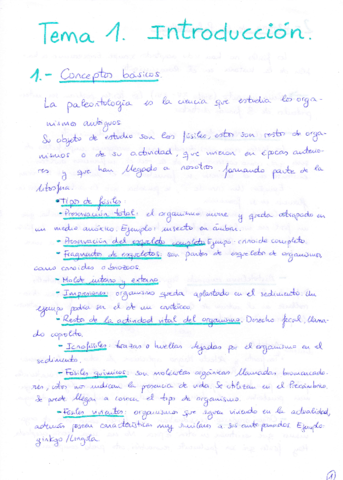 Tema 1. Introducción.
1.- Conceptos básicos.
La paleontología es la ciencia que estudia los orga-
nismos antiguos.
Su objeto de estudio son los fósiles, estos son restos de orga-
nismos o de su actividad, que vivieron en épocas anterio-
res y que han llegado a nosotros formando parte de la
litosfera.
•Tipo de fósiles
-Preservación total: el organismo muere y queda atrapado en
un medio anóxico. Ejemplo: insecto en ámbar.
-Preservación del esqueleto completo. Ejemplo: crinoide completo.
-Fragmentos de esqueletos: son partes de esqueleto de organismos
como crinoides o briozoos.
-Molde interno y externo
-Impresiones: organismo queda aplastado en el sedimento. Un
ejemplo podría ser el de un
-Restos de la actividad vital del organismo. Desecho fecal, llama-
do coprolito.
-Icnofósiles: trazas o huellas dejadas por el organismo en el
sedimento.
-Fósiles químicos: son moléculas orgánicas llamadas biomarcado-
res, nos indican la presencia de vida. Se utilizan en el Precámbrico.
Se puede llegar a conocer el tipo de organismo.
-Fósiles vivientes: organismos que siguen viviendo en la actualidad,
además poseen características muy similares a sus antepasados. Ejemplo
ginkgo/Lingula.
1